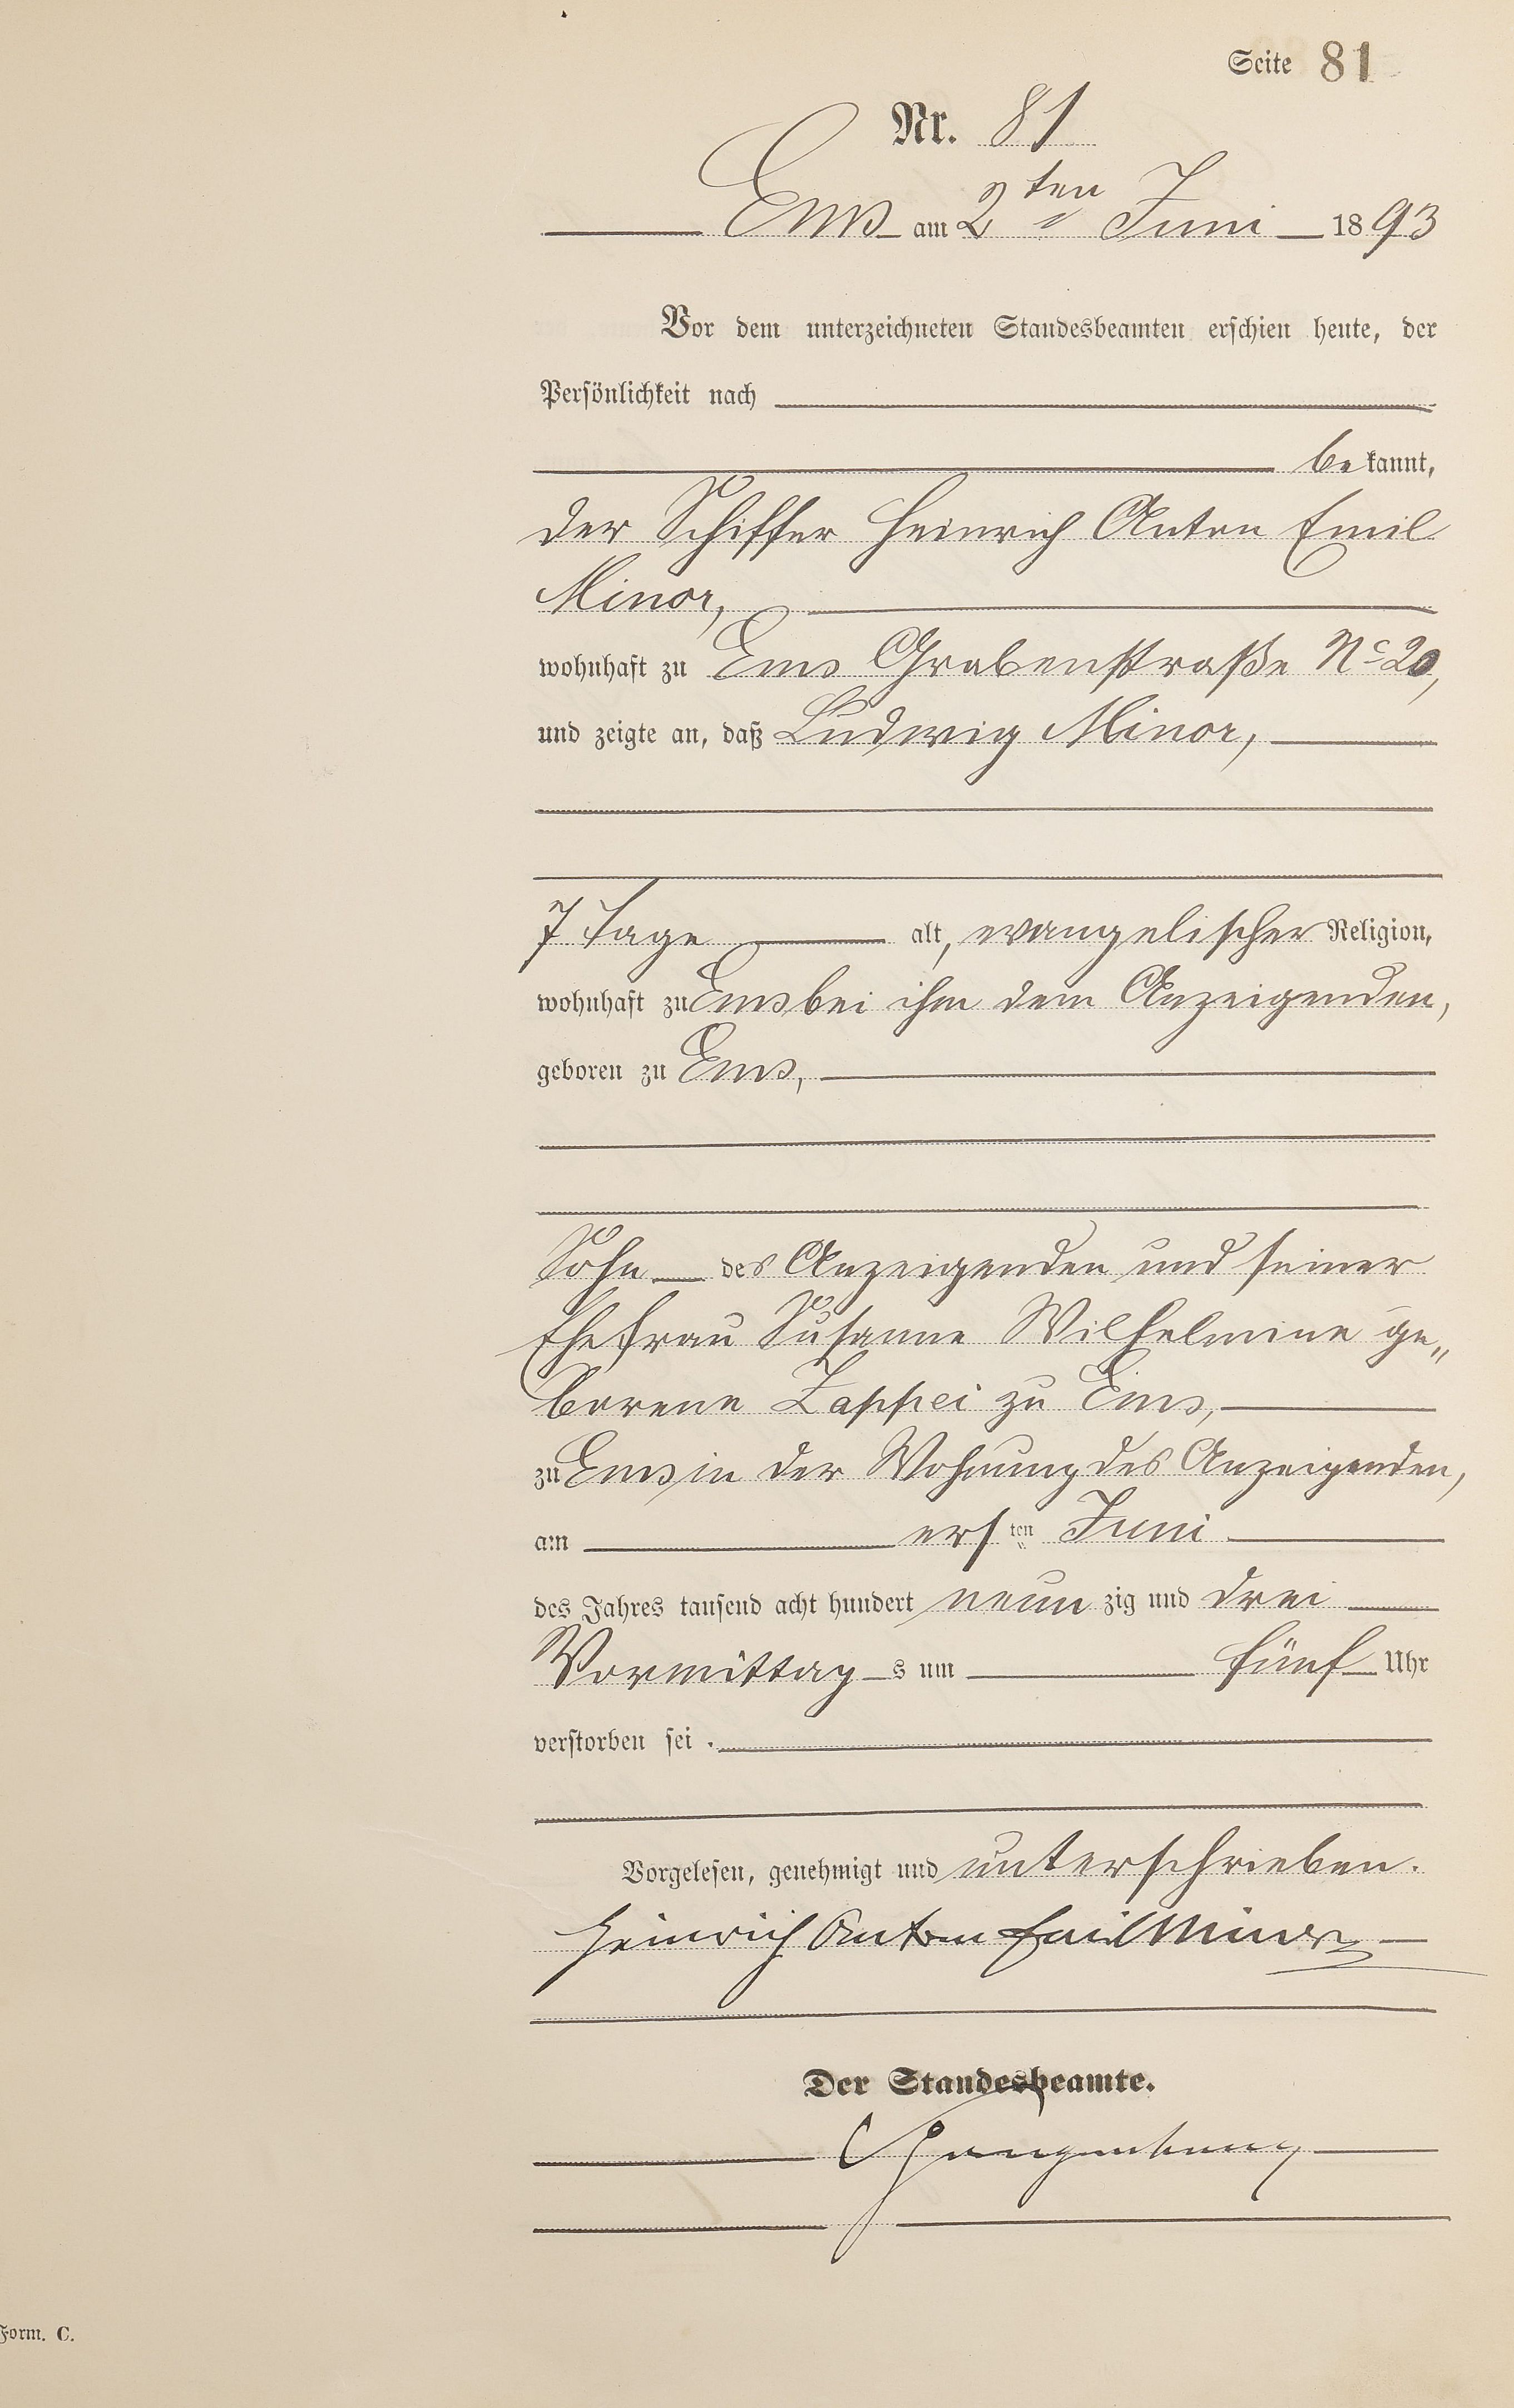 Seite 81
Nr. 81
Ems am 2ten Juni 1893
Vor dem unterzeichneten Standesbeamten erschien heute, der
Persönlichkeit nach
bekannt,
der Schiffer Heinrich Anton Emil
Minor,
wohnhaft zu Ems Grabenstraße No 20,
und zeigte an, daß Ludwig Minor,
7 Tage alt, evangelischer Religion,
wohnhaft zu Ems bei ihm dem Anzeigenden,
geboren zu Ems,
Sohn des Anzeigenden und seiner
Ehefrau Susanne Wilhelmine ge„
borene Zappei zu Ems,
zu Ems in der Wohnung des Anzeigenden,
am ersten Juni
des Jahres tausend acht hundert neunzig und drei
Vormittags um fünf Uhr
verstorben sei.
Vorgelesen, genehmigt und unterschrieben.
Heinrich Anton Emil Minor
Der Standesbeamte.
Form. C.